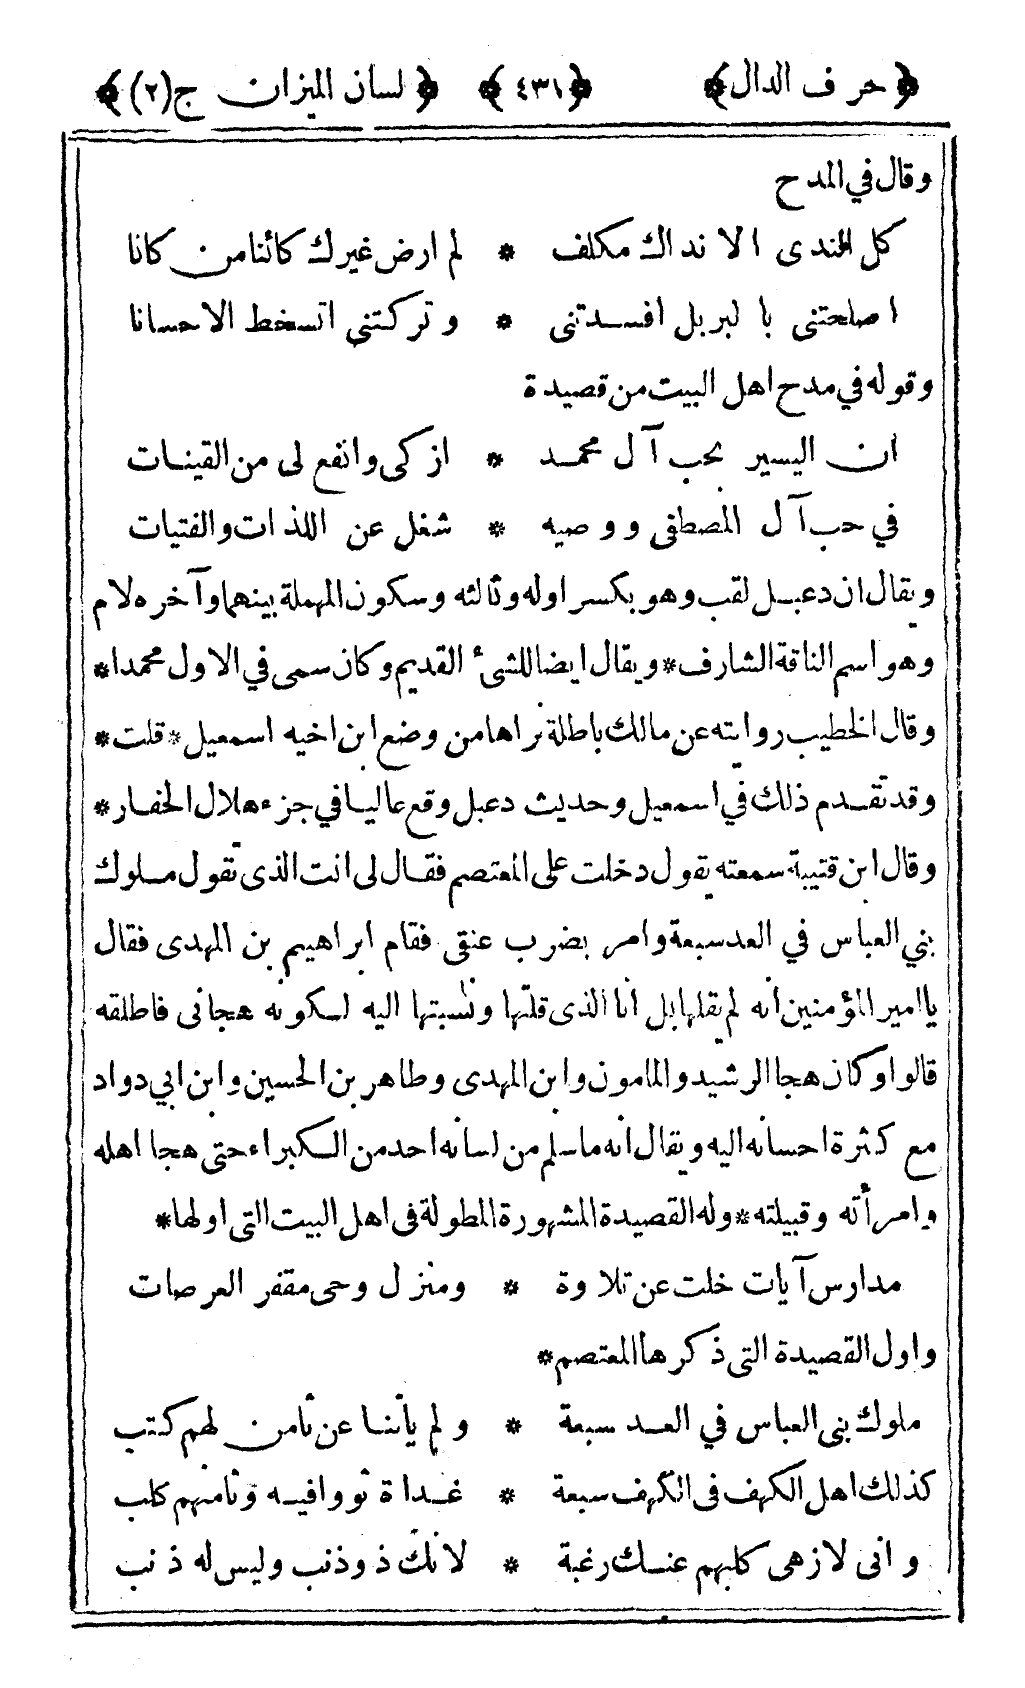 ﴿حرف الدال﴾ ﴿٤٣١﴾ ﴿لسان الميزان ج(٢)﴾
وقال في المدح
كل الندى الا نداك مكلف * لم ارض غيرك كائنا من كانا
اصلحتنى بالبر بل افسدتنى * وتركتنى اتسخط الاحسانا
وقوله في مدح اهل البيت من قصيدة
ان اليسير بحب آل محمد * ازكى وانفع لى من القينات
في حب آل المصطفى ووصيه * شغل عن اللذات والفتيات
ويقال ان دعبل لقب وهو بكسر اوله وثالثه وسكون المهملة بينهما وآخره لام
وهو اسم الناقة الشارف * ويقال ايضا للشئ القديم وكان سمى في الاول محمدا *
وقال الخطيب روايته عن مالك باطلة نراها من وضع ابن اخيه اسمعيل * قلت *
وقد تقدم ذلك في اسمعيل وحديث دعبل وقع عاليا في جزء هلال الحفار *
وقال ابن قتيبة سمعته يقول دخلت على المعتصم فقال لى انت الذى تقول ملوك
بني العباس في العد سبعة وامر بضرب عنقى فقام ابراهيم بن المهدى فقال
يا امير المؤمنين انه لم يقلها بل انا الذى قلتها ونسبتها اليه لكونه هجانى فاطلقه
قالوا وكان هجا الرشيد والمامون وابن المهدى وطاهر بن الحسين وابن ابي دواد
مع كثرة احسانه اليه ويقال انه ما سلم من لسانه احد من الكبراء حتى هجا اهله
وامرأته وقبيلته * وله القصيدة المشهورة المطولة فى اهل البيت التى اولها *
مدارس آيات خلت عن تلاوة * ومنزل وحى مقفر العرصات
واول القصيدة التى ذكرها المعتصم *
ملوك بنى العباس في العد سبعة * ولم يأتنا عن ثامن لهم كتب
كذلك اهل الكهف فى الكهف سبعة * غداة ثووا فيه وثامنهم كلب
وانى لازهى كلبهم عنك رغبة * لانك ذو ذنب وليس له ذنب